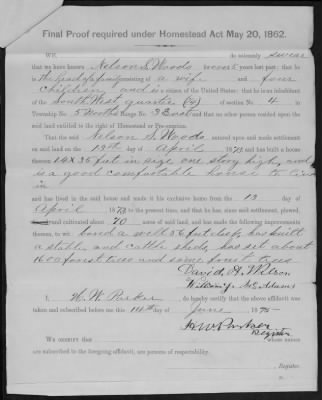 Final Proof required under Homestead Act May 20, 1862.
We, do solemnly swear
that we have known Nelson S. Woods for over 5 years last past; that he
is the head of a family consisting of a wife and four
children and is a citizen of the United States; that he is an inhabitant
of the South West quarter (¼) of section No. 4 in
Township No. 5 North of Range No. 3 East and that no other person resided upon the
said land entitled to the right of Homestead or Pre-emption.
That the said Nelson S. Woods entered upon and made settlement
on said land on the 12th day of April 1873 and has built a house
thereon 14 x 25 feet in size one story high, and
is a good comfortable house to live
in
and has lived in the said house and made it his exclusive home from the 12 day of
April 1873 to the present time, and that he has, since said settlement, plowed,
and cultivated about 70 acres of said land, and has made the following improvements
thereon, to wit: bored a well 56 feet deep, has built
a stable and cattle sheds, has set about
1600 forest trees and some fruit trees
David A. Wilson
William J. McAdams
I, H. W. Parker do hereby certify that the above affidavit was
taken and subscribed before me this 14th day of June 1875
H. W. Parker
Register
We certify that whose names
are subscribed to the foregoing affidavit, are persons of respectability.
, Register.